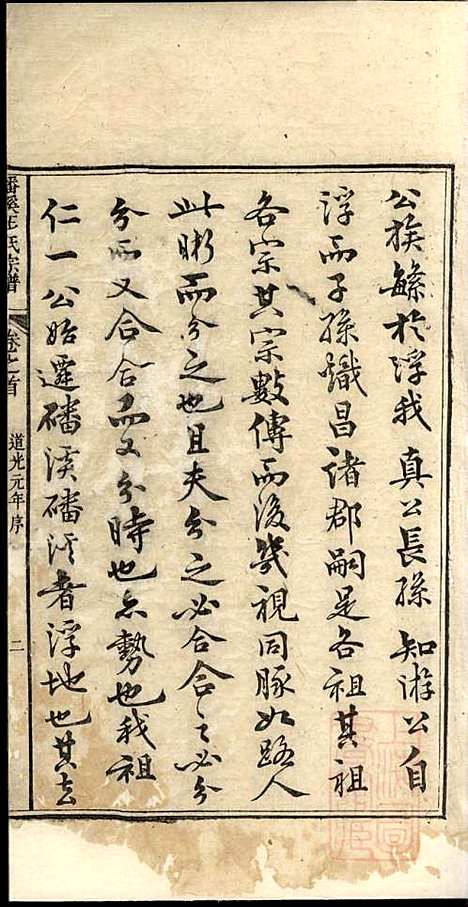 公族繇於浮我 真公長孫 知游公自
浮而子孫熾昌諸郡嗣是各祖其祖
各宗其宗數傳而後幾視同豚如路人
此晰而分之也且夫分之必合合之必分
分而又合合而又分時也亦勢也我祖
仁一公始遷磻溪磻溪者浮地也其去
磻溪王氏宗譜 卷之首 道光元年序 二